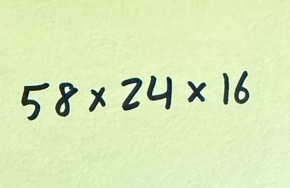 58 × 24 × 16